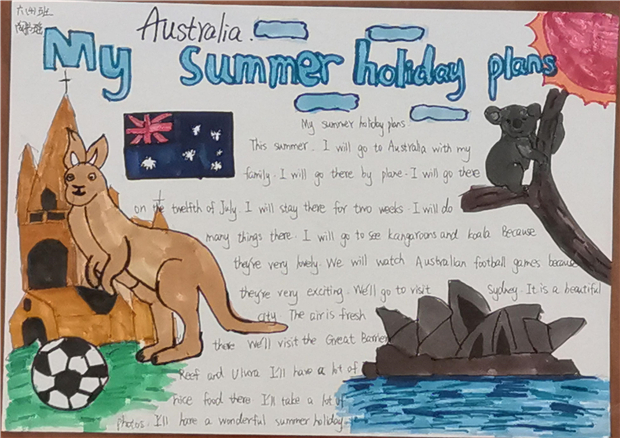 六(4)班
Australia.
My summer holiday plans
My summer holiday plans
This summer. I will go to Australia with my
family. I will go there by plane. I will go there
on the twelfth of July. I will stay there for two weeks. I will do
many things there. I will go to see kangaroons and koala. Because
they're very lovely. We will watch Australian football games because
they're very exciting. We'll go to visit Sydney. It is a beautiful
city. The air is fresh
there. We'll visit the Great Barrier
Reef and Uluru. I'll have a lot of
nice food there. I'll take a lot of
photos. I'll have a wonderful summer holiday.